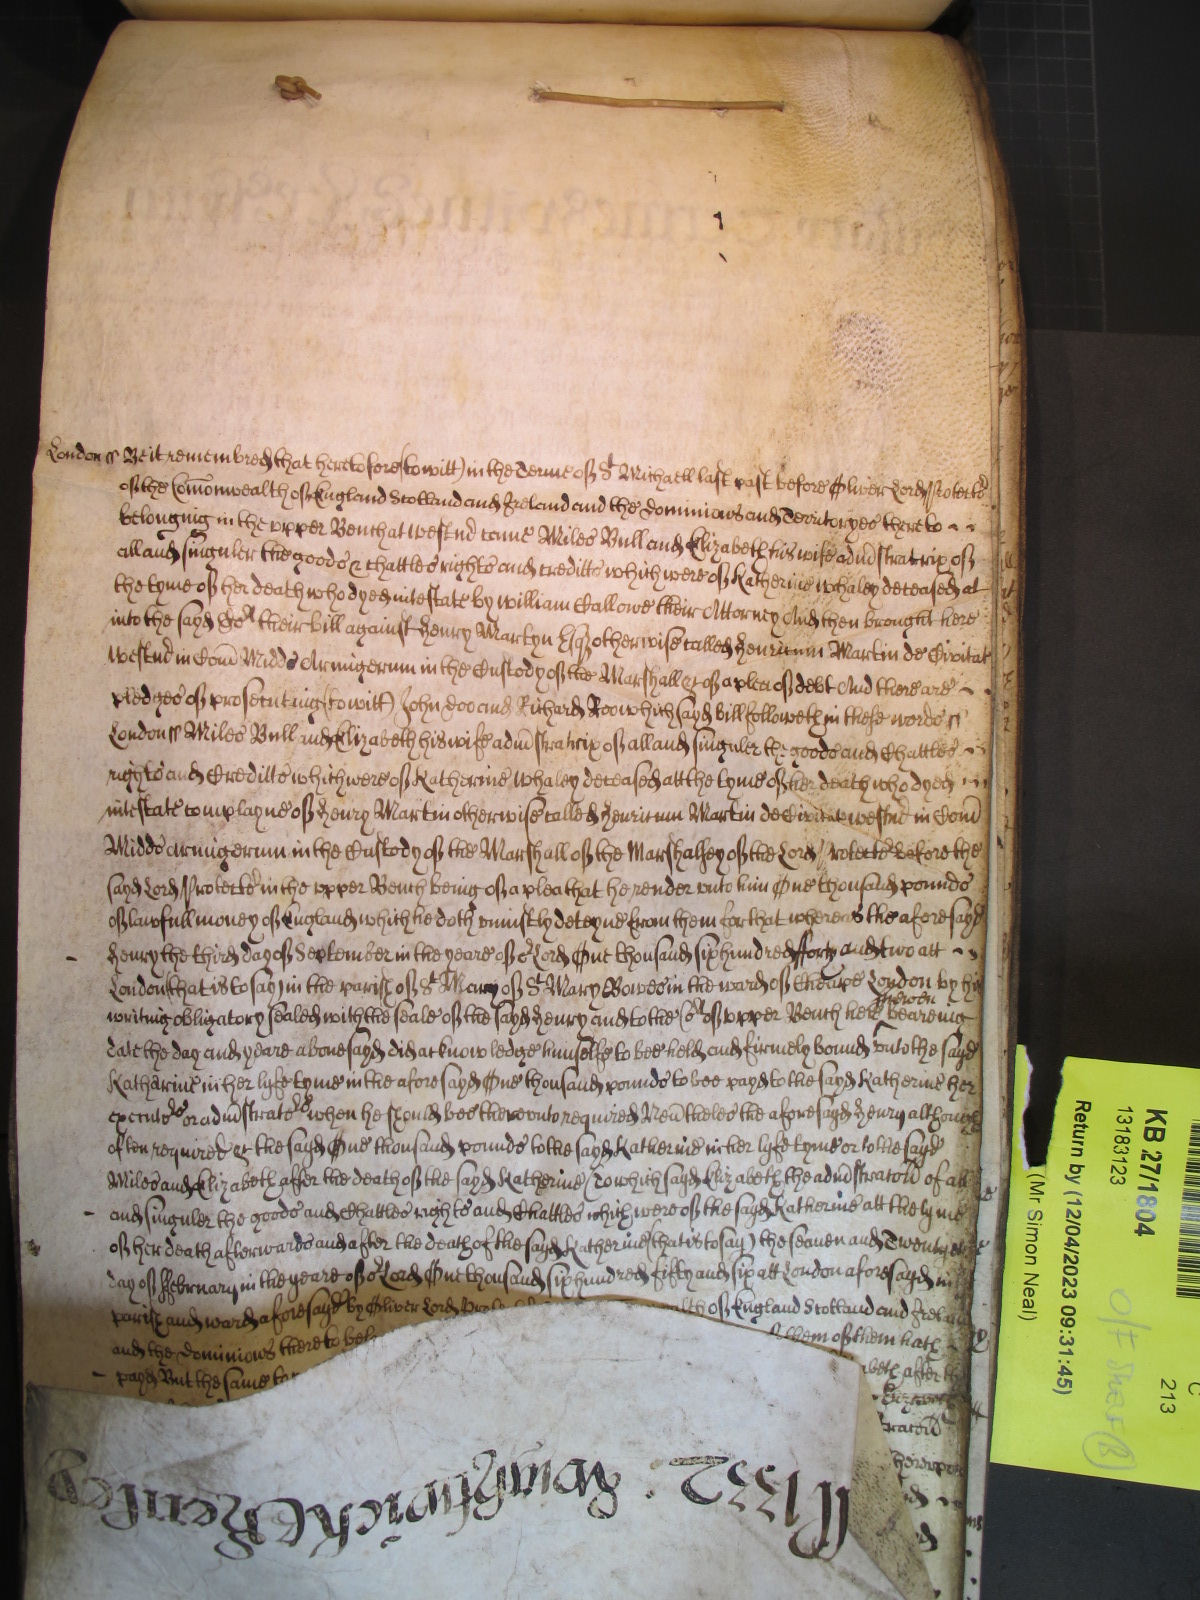 London ss Be it remembred that heretofore (to witt) in the Terme of St Michaell last past before Oliver Lord Protector
of the Comonwealth of England Scotland and Ireland and the Dominions and Territoryes thereto
belonging in the upper Bench at Westmr came Miles Bull and Elizabeth his wife admistratrix of
all and singuler the goods & chattles rights and creditts which were of Katherine Whaley deceased at
the tyme of her death who dyed intestate by William Callowe their Attorney And then brought here
into the sayd Cort their bill against Henry Martyn Esqr otherwise called Henricum Martin de Civitat
Westmr in Com Midds Armigerum in the Custody of the Marshall &c of a plea of debt And there are
pledges of prosecuting (to witt) John Doo and Richard Roo which sayd bill followeth in these words ss
London ss Miles Bull and Elizabeth his wife admistratrix of all and singuler the goods and Chattles
rights and Creditts which were of Katherine Whaley deceased att the tyme of her death who dyed
intestate complayne of Henry Martin otherwise called Henricum Martin de Civitat Westmr in Com
Midds armigerum in the Custody of the Marshall of the Marshalsey of the Lord Protector before the
sayd Lord Protector in the upper Bench being of a plea that he render unto him One thousand pounds
of lawfull money of England which he doth uniustly deteyne from them for that whereas the aforesayd
Henry the third day of September in the yeare of or Lord One thousand six hundred forty and two att
London that is to say) in the parish of St Mary of St Mary Bowe in the ward of Cheape London by his
writing obligatory sealed with the seale of the sayd Henry and to the Cort of upper Bench here shewen bearing
date the day and yeare abovesayd did acknowledge himselfe to bee held and firmely bound unto the sayd
Katharine in her lyfe tyme in the aforesayd One thousand pounds to bee payd to the sayd Katherine her
executors or admistrators when he should bee thereunto required Nevtheles the aforesayd Henry although
often required &c the sayd One thousand pounds to the sayd Katherine in her lyfe tyme or to the sayd
Miles and Elizabeth after the death of the sayd Katherine (to which sayd Elizabeth the admistracon of all
and singuler the goods and Chattles rights and Chattles which were of the sayd Katherine att the tyme
of her death afterwards and after the death of the sayd Katherine (that is to say) the seaven and Twentyeth
day of February in the yeare of or Lord One thousand six hundred fifty and six att London aforesayd in
parish and ward aforesayd by Oliver Lord of England Scotland and Ireland
and the Dominions thereto them of them hath
payd But the same to after the
KB 27/1804
13183123
213
(Mr Simon Neal)
Return by (12/04/2023 09:31:45)